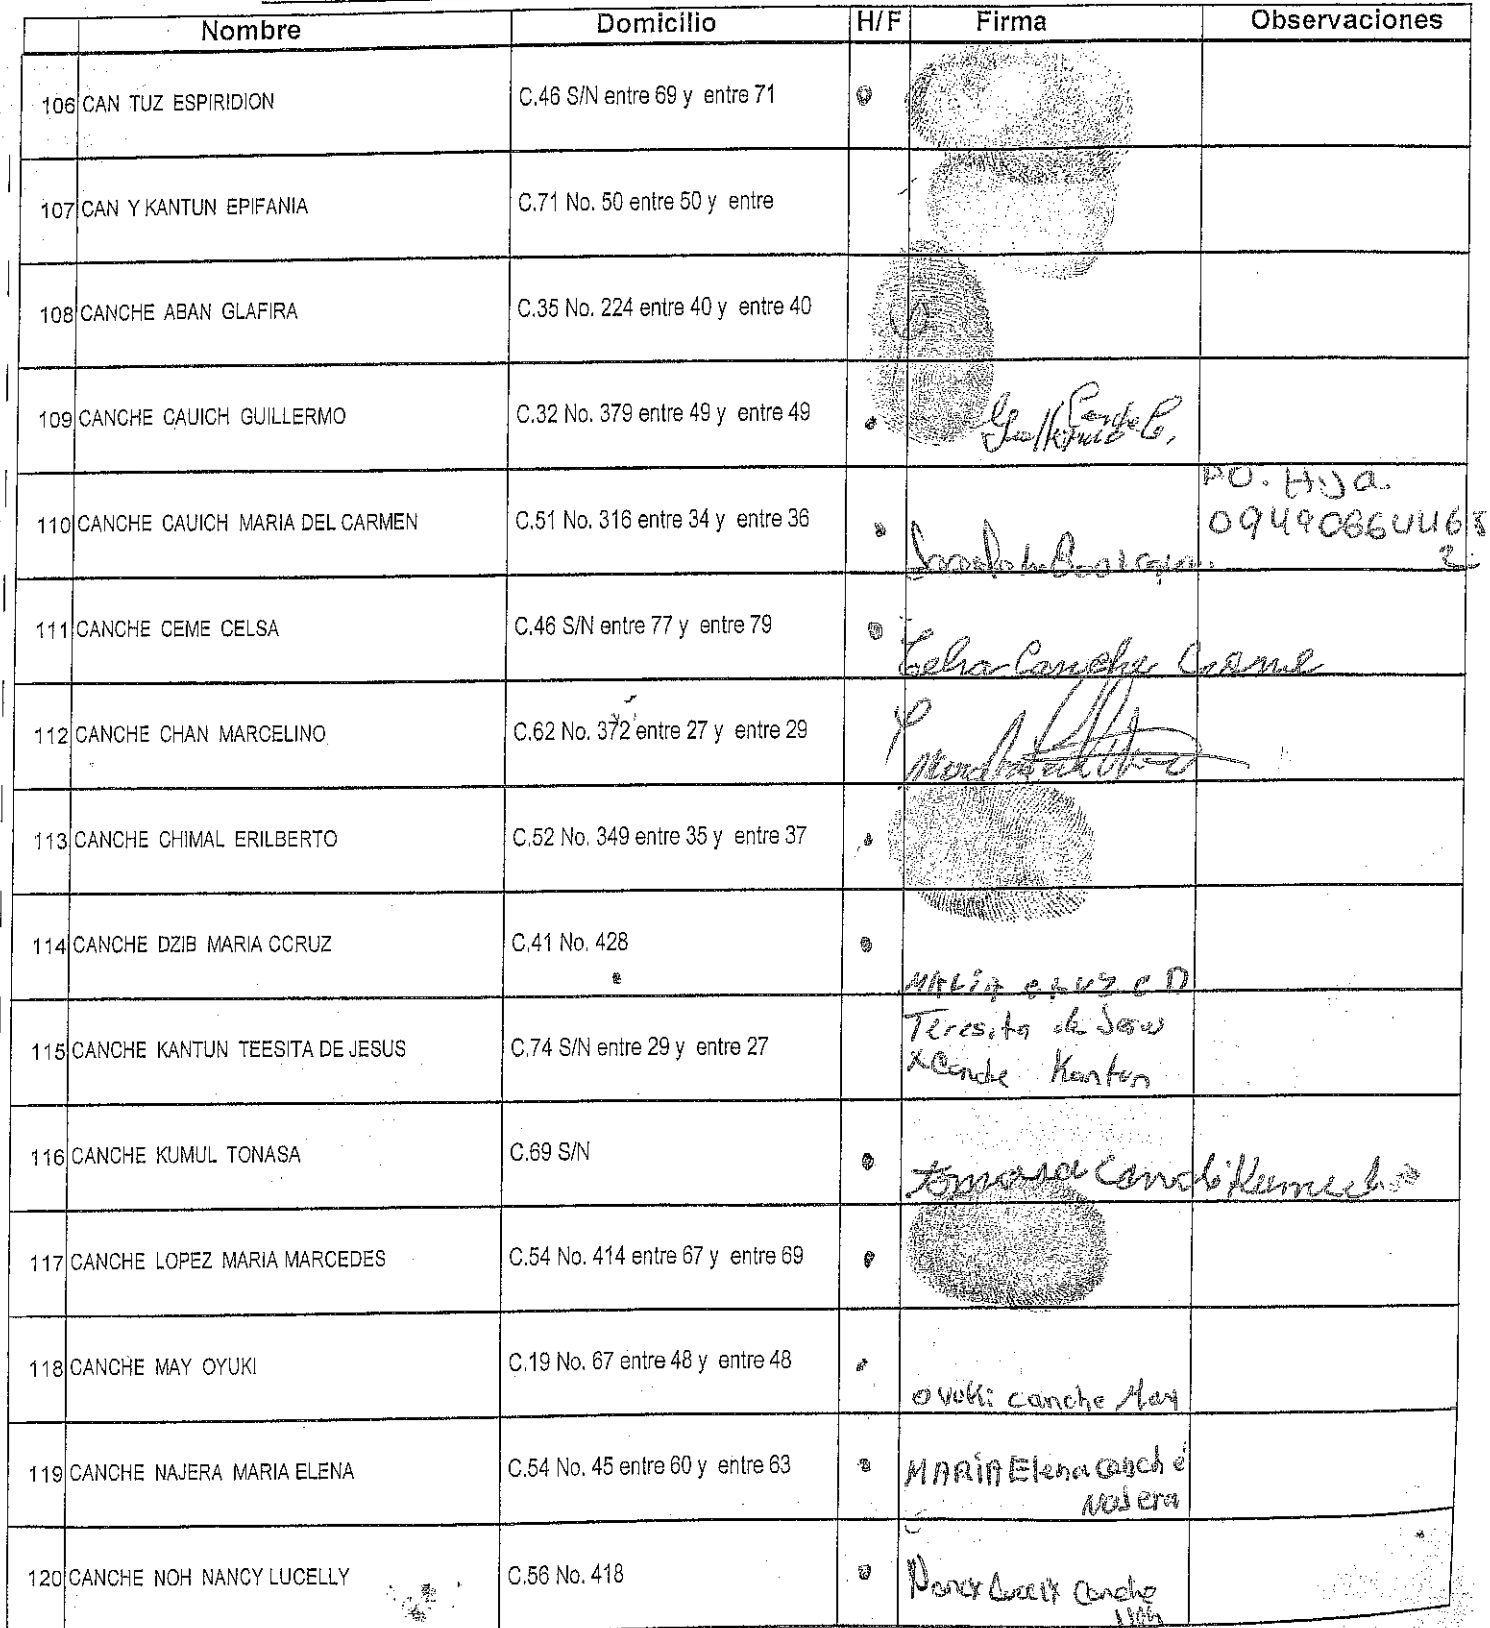 Nombre Domicilio H/F Firma Observaciones
106 CAN TUZ ESPIRIDION C.46 S/N entre 69 y entre 71
107 CAN Y KANTUN EPIFANIA C.71 No. 50 entre 50 y entre
108 CANCHE ABAN GLAFIRA C.35 No. 224 entre 40 y entre 40
109 CANCHE CAUICH GUILLERMO C.32 No. 379 entre 49 y entre 49 Guillermo Canche C.
110 CANCHE CAUICH MARIA DEL CARMEN C.51 No. 316 entre 34 y entre 36 PO. Hija
111 CANCHE CEME CELSA C.46 S/N entre 77 y entre 79 Celsa Canche Ceme
112 CANCHE CHAN MARCELINO C.62 No. 372 entre 27 y entre 29
113 CANCHE CHIMAL ERILBERTO C.52 No. 349 entre 35 y entre 37
114 CANCHE DZIB MARIA CCRUZ C.41 No. 428 MARIA CRUZ C D
115 CANCHE KANTUN TEESITA DE JESUS C.74 S/N entre 29 y entre 27 Teresita de Jesus
x Canche Kantun
116 CANCHE KUMUL TONASA C.69 S/N tomasa Canche Kumul
117 CANCHE LOPEZ MARIA MARCEDES C.54 No. 414 entre 67 y entre 69
118 CANCHE MAY OYUKI C.19 No. 67 entre 48 y entre 48 oyuki canche May
119 CANCHE NAJERA MARIA ELENA C.54 No. 45 entre 60 y entre 63 MARIA Elena canché
Najera
120 CANCHE NOH NANCY LUCELLY C.56 No. 418 Nancy Lucely Canche
Noh